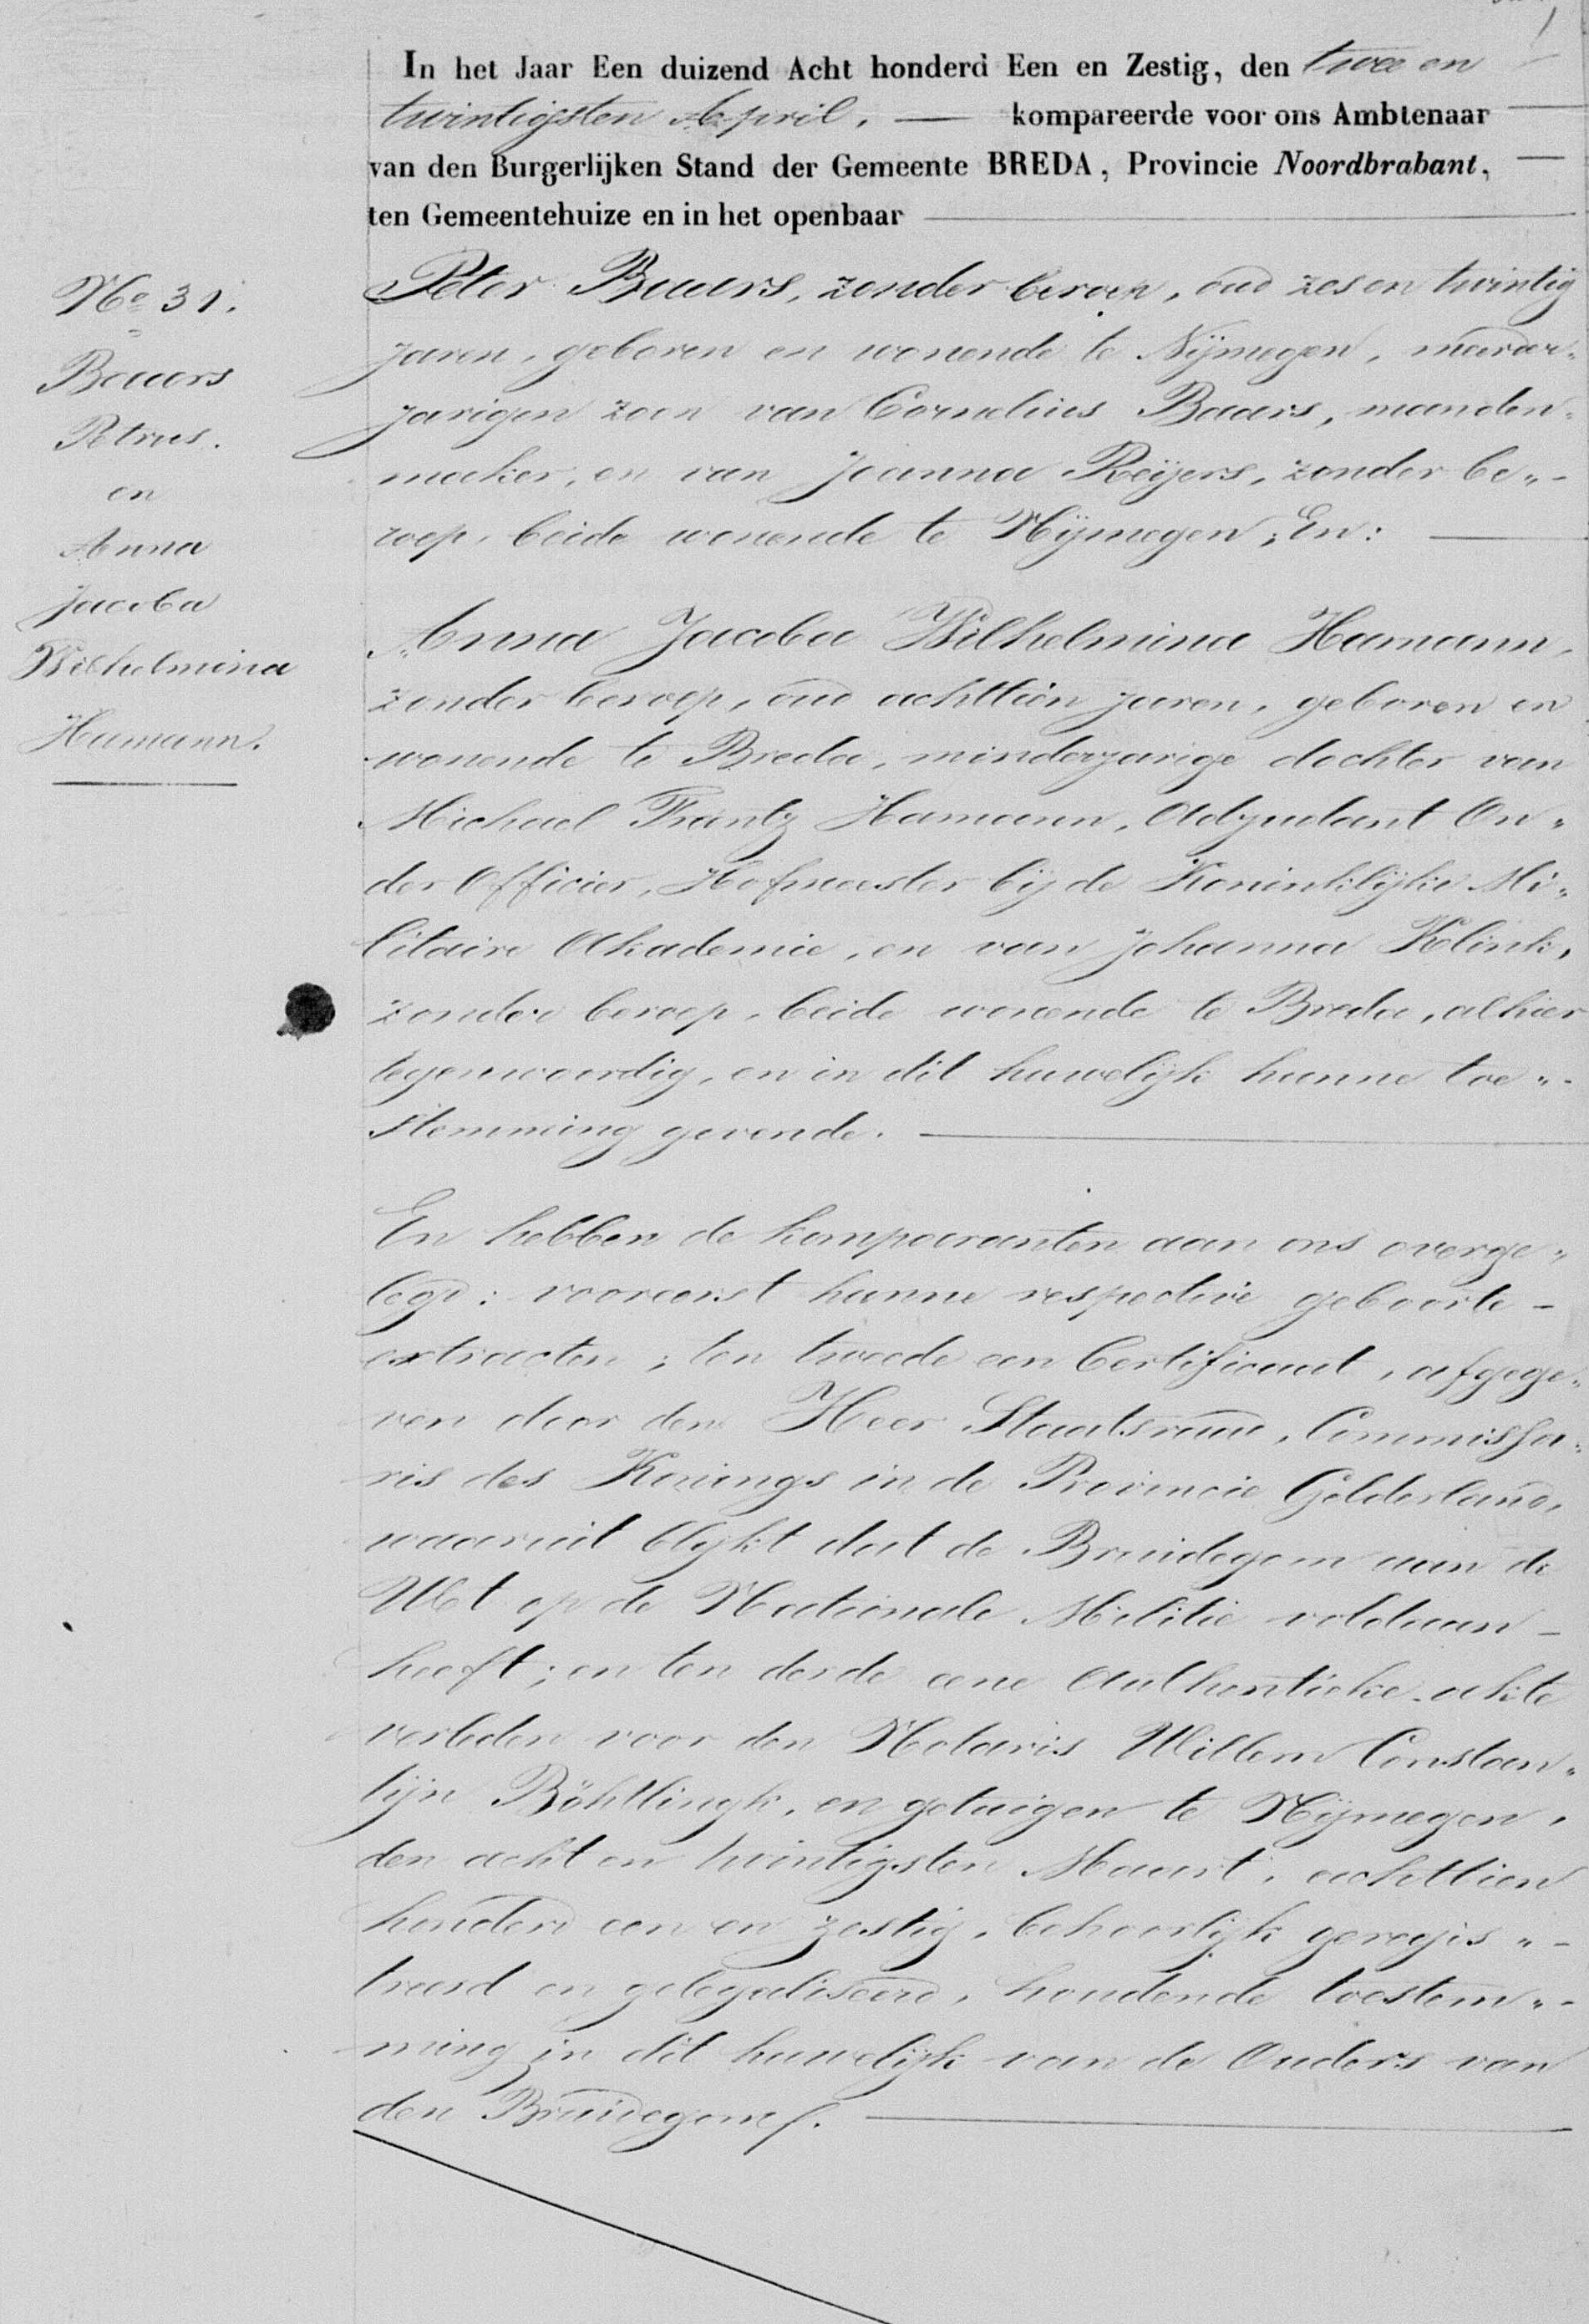 In het Jaar Een duizend Acht honderd Een en Zestig, den twee en
twintigsten April. — kompareerde voor ons Ambtenaar
van den Burgerlijken Stand der Gemeente BREDA, Provincie Noordbrabant,
ten Gemeentehuize en in het openbaar
No 31.
Baaars
Petrus.
en
Anna
Jacoba
Wilhelmina
Hamann.
Peter Baaars, zonder beroep, oud zes en twintig
jaren, geboren en wonende te Nijmegen, meerder„
jarigen zoon van Cornelius Baaars, manden„
maker, en van Joanna Reijers, zonder be„-
roep, beide wonende te Nijmegen; En:
Anna Jacoba Wilhelmina Hamann,
zonder beroep, oud achttien jaren, geboren en
wonende te Breda, minderjarige dochter van
Michael Frantz Hamann, Adjudant On„
der Officier, Hofmeester bij de Koninklijke Mi„
litaire Akademie, en van Johanna Klink,
zonder beroep, beide wonende te Breda, alhier
tegenwoordig, en in dit huwelijk hunne toe„-
stemming gevende.
En hebben de komparanten aan ons overge„
legd: vooreerst hunne respective geboorte-
extracten; ten tweede een Certificaat, afgege„
ven door den Heer Staatsraad, Commissa„
ris des Konings in de Provincie Gelderland,
waaruit blijkt dat de Bruidegom aan de
Wet op de Nationale Militie voldaan-
heeft; en ten derde eene Authentieke akte
verleden voor den Notaris Willem Constan„
tijn Böhtlingk, en getuigen te Nijmegen,
den acht en twintigsten Maart, achttien
honderd een en zestig, behoorlijk geregis„-
treerd en gelegaliseerd, houdende toestem„-
ming in dit huwelijk van de Ouders van
den Bruidegom/.